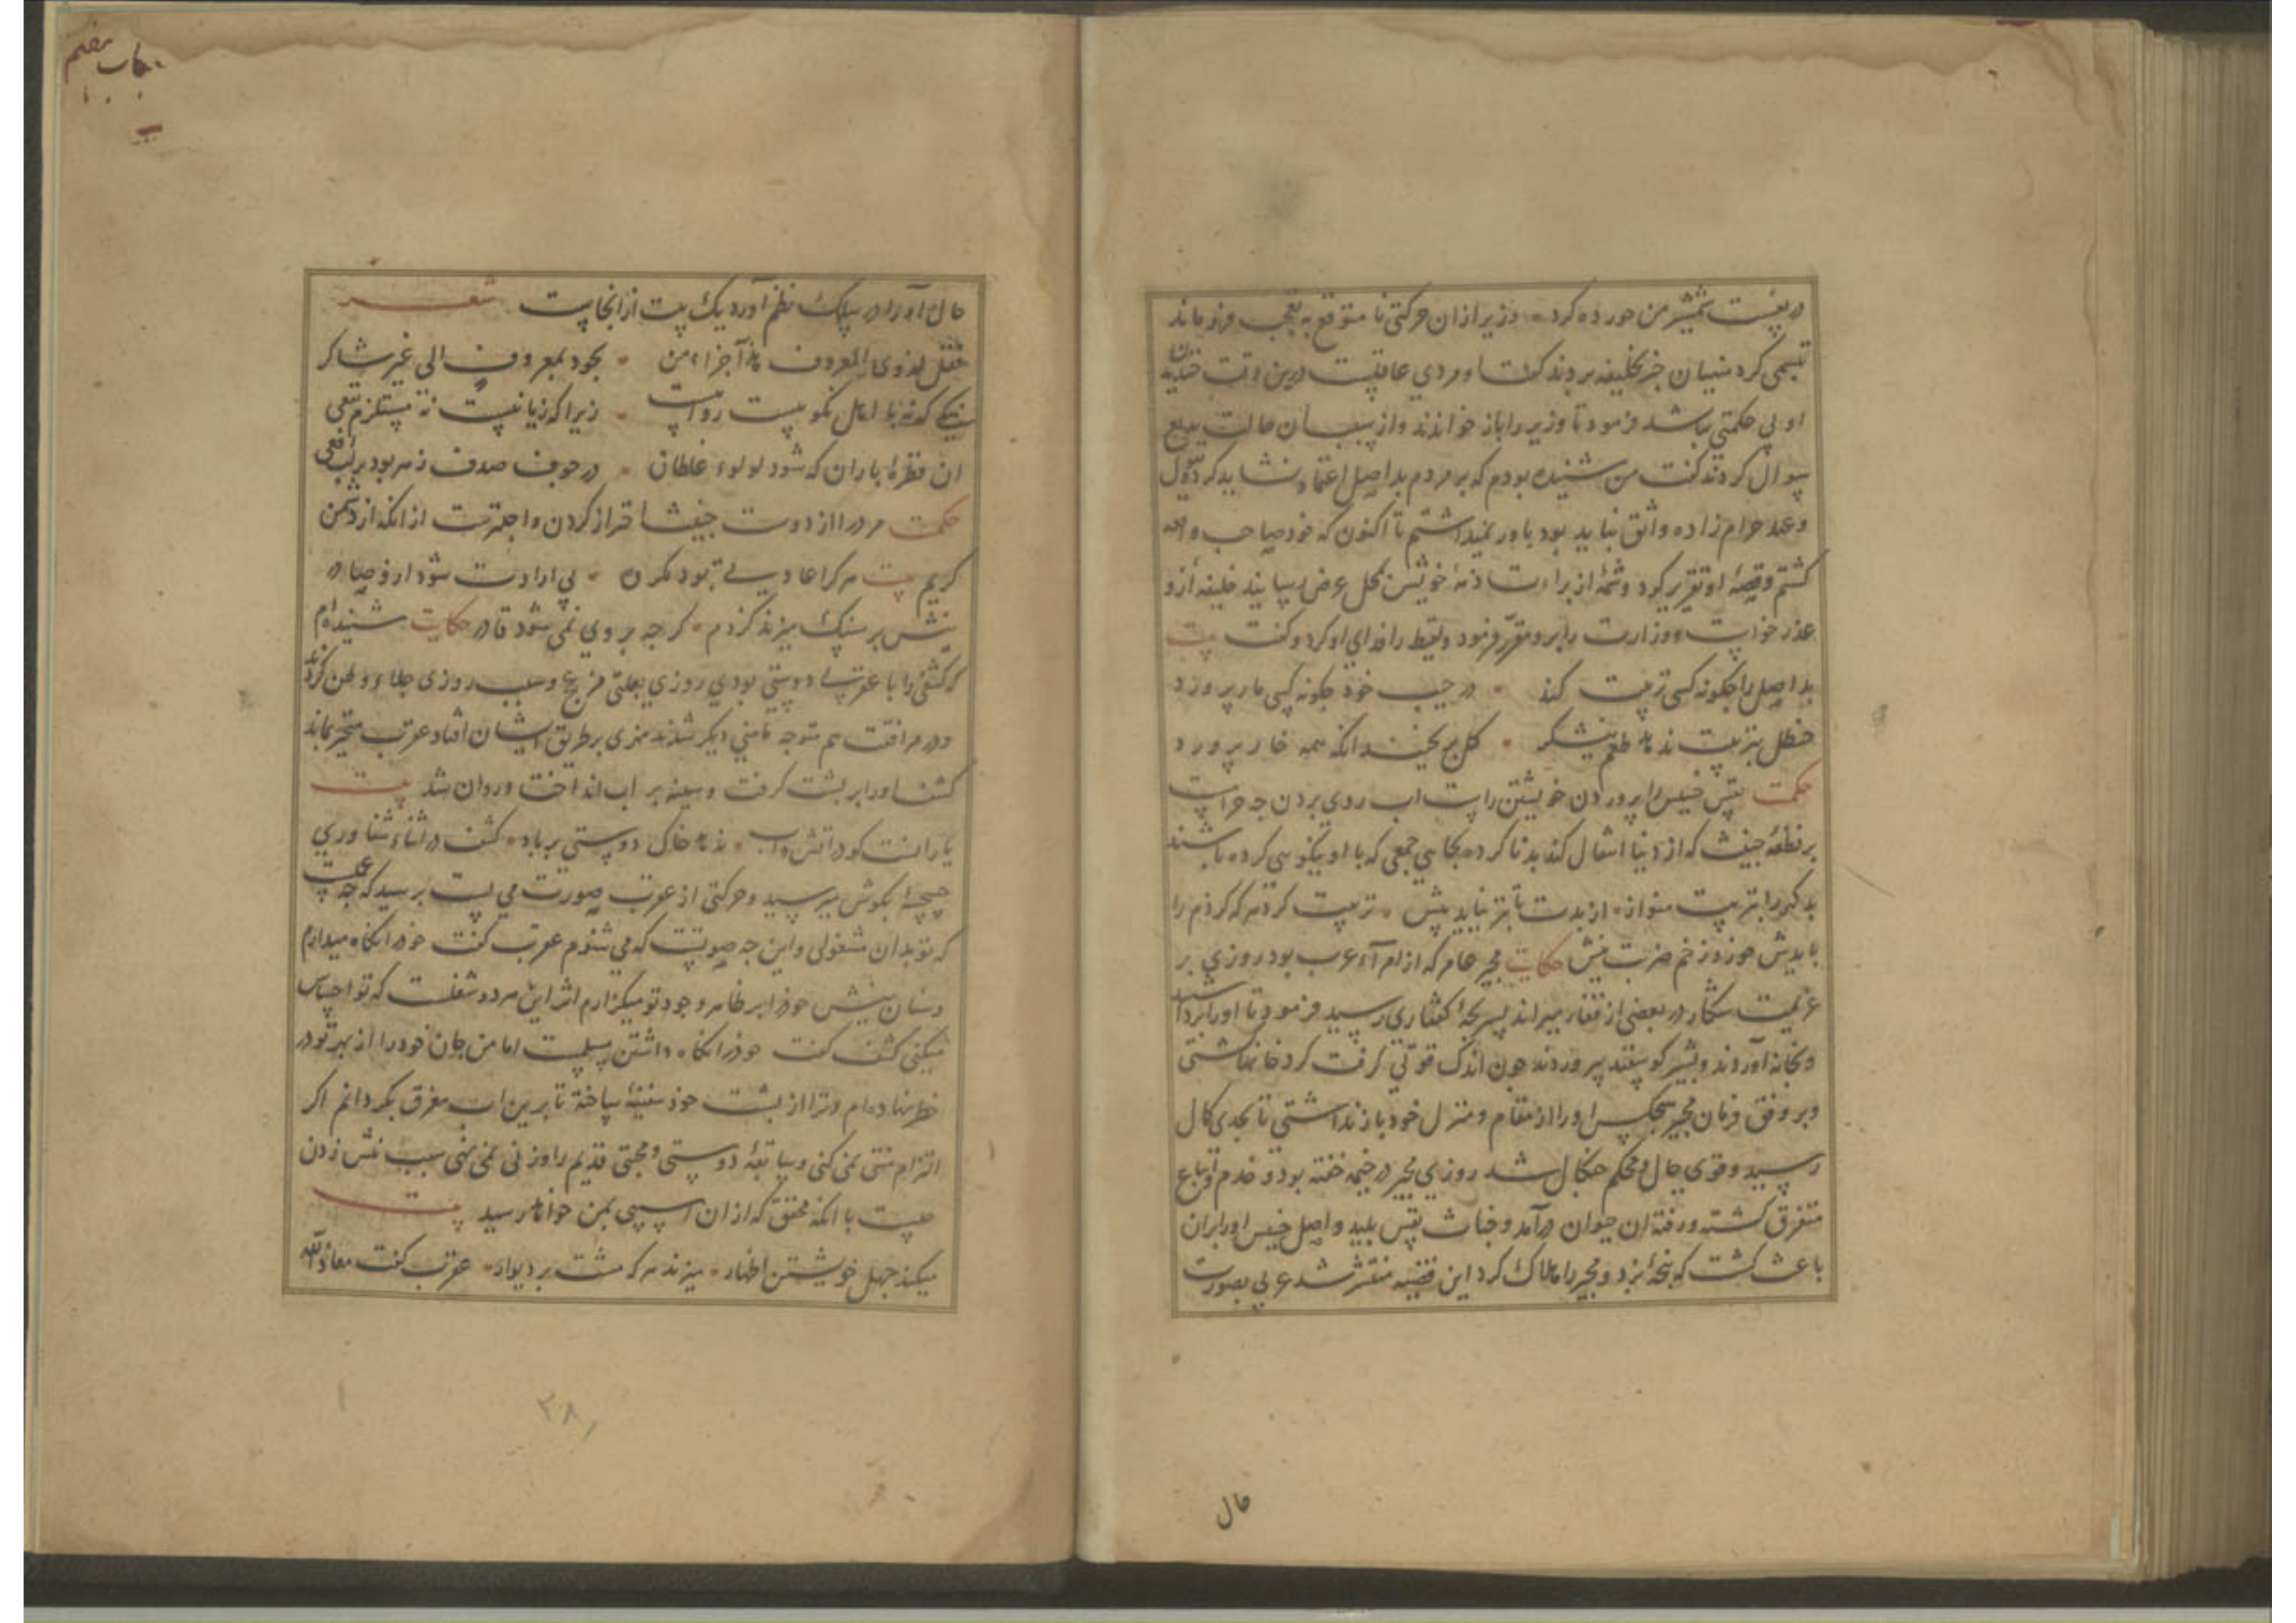 در پشت شمشیر من خورده کرد وزیر ازان حرکتی نا متوقع به تعجب فرو ماند
تبسمی کرد منهیان خبر بخلیفه بردند کفت او مردی عاقلست درین وقت خندیدن
او بی حکمتی نباشد فرمود تا وزیر را باز خواندند و از سبب ان حالت بدیع
سوال کردند کفت من شنیده بودم که بر مردم بد اصل اعتماد نشاید کرد و بقول
وعهد حرام زاده واثق نباید بود باور نمیداشتم تا اکنون که خود صاحب واقعه
کشتم وقصهٔ او تقریر کرد وشمهٔ از براءت ذمهٔ خویش بمحل عرض رسانید خلیفه ازو
عذر خواست و وزارت را برو مقرر فرمود ولقیط را فدای او کرد و کفت بیت
بد اصل را چکونه کسی تربیت کند در جیب خود چکونه کسی مار پرورد
حنظل بتربیت ندهد طعم نیشکر کل بر نچیند انکه همه خار پرورد
حکمت نفس خسیس را پروردن خویشتن راست اب روی بردن چه حراست
بر نطفهٔ خبیث که از دنیا انتقال کند بد نا کرده بجای جمعی که با او نیکویی کرده باشند
بد کهر را بتربیت منواز از بدت تا بتر نیاید پیش تربیت کرد هر که کزدم را
بایدش خورد زخم ضربت نیش حکایت مجیر عامر که از امراء عرب بود روزی بر
عزیمت شکار در بعضی از قفار میراند بسر بچهٔ کفتاری رسید فرمود تا او را برداشتند
و بخانه آوردند وبشیر کوسفند پروردند چون اندک قوتی کرفت کرد خانها کشتی
و بر وفق فرمان مجیر هیچکس او را از مقام و منزل خود باز نداشتی تا بحدی کمال
رسید وقوی حال و محکم چنکال شد روزی مجیر در خیمه خفته بود و خدم و اتباع
متفرق کشته و رفته ان حیوان درآمد و خباثت نفس پلید و اصل خسیس او را بران
باعث کشت که پنجهٔ بزد و مجیر را هلاک کرد این قضیه منتشر شد عربی بصورت
حال
حال او را در سلک نظم آورد یک بیت از انجاست شعر
فقل لذوی المعروف هذا جزاء من یجود بمعروف الی غیر شاکر
نیکی که نه با اهل نکویست روا نیست زیرا که زیانیست نه مستلزم نفعی
ان قطرهٔ باران که شود لولوء غلطان در جوف صدف زهر بود بر لب افعی
حکمت مرد را از دوست خبیث احتراز کردن واجبترست از انکه از دشمن
کریم بیت هر کرا عادتی بود مکرن بی ارادت شود ازو صادر
نیش بر سنک میزند کزدم کرچه بر وی نمی شود قادر حکایت شنیده ام
که کشفی را با عقربی دوستی بودی روزی بعلتی فزع وسبب روزی جلاء وطن کردند
ودر مرافقت هم متوجه مامنی دیکر شدند نهری بر طریق ایشان افتاد عقرب متحیر بماند
کشف او را بر پشت کرفت وسینه بر اب انداخت و روان شد بیت
یار انست کو در اتش و اب ندهد خاک دوستی بر باد کشف در اثناء شناوری
چیچهٔ بکوش میرسید وحرکتی از عقرب صورت می بست پرسید که چه عملست
که تو بدان مشغولی واین چه صوتست که می شنوم عقرب کفت خود را نکاه میدارم
وسنان نیش خود را بر ظاهر وجود تو میکزارم اثر این هر دو شغلست که تو احساس
میکنی کشف کفت خود را نکاه داشتن مسلمست اما من جان خود را از بهر تو در
خطر نهاده ام و ترا از پشت خود سفینه ساخته تا برین اب مغرق بکردانم اکر
التزام منتی نمی کنی وسابقهٔ دوستی ومحبتی قدیم را وزنی نمی نهی سبب نیش زدن
چیست با انکه محقق که ازان اسیبی بمن نخواهد رسید بیت
میکند جهل خویشتن اظهار میزند هر که مشت بر دیوار عقرب کفت معاذ الله
۳۸